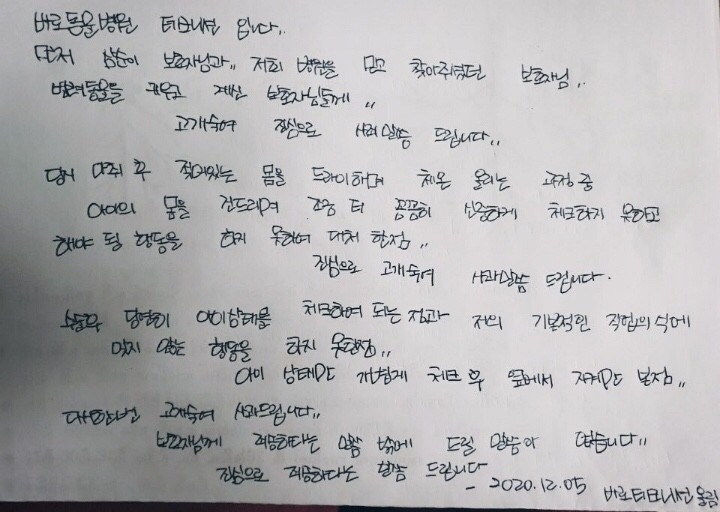 바로동물병원 테크니션 입니다..
먼저 삼순이 보호자님과,, 저희 병원을 믿고 찾아주셨던 보호자님,,
반려동물들 키우고 계신 보호자님들께,,
고개숙여 진심으로 사과말씀 드립니다,,
당시 마취 후 젖어있는 몸을 드라이하며 체온 올리는 과정 중
아이의 몸을 건드리며 조금 더 꼼꼼히 신중하게 체크하지 못하고
해야 될 행동을 하지 못하여 대처 한점,,
진심으로 고개숙여 사과말씀 드립니다.
수술후 당연히 아이상태를 체크하여 되는 점과 저의 기본적인 직업의식에
맞지 않는 행동을 하지 못한점,,
아이 상태만 가볍게 체크 후 옆에서 지켜만 본점,,
다시한번 고개숙여 사과드립니다,,
보호자님께 죄송하다는 말씀 밖에 드릴 말씀이 없습니다,,
진심으로 죄송하다는 말씀 드립니다
- 2020.12.05 바로테크니션 올림